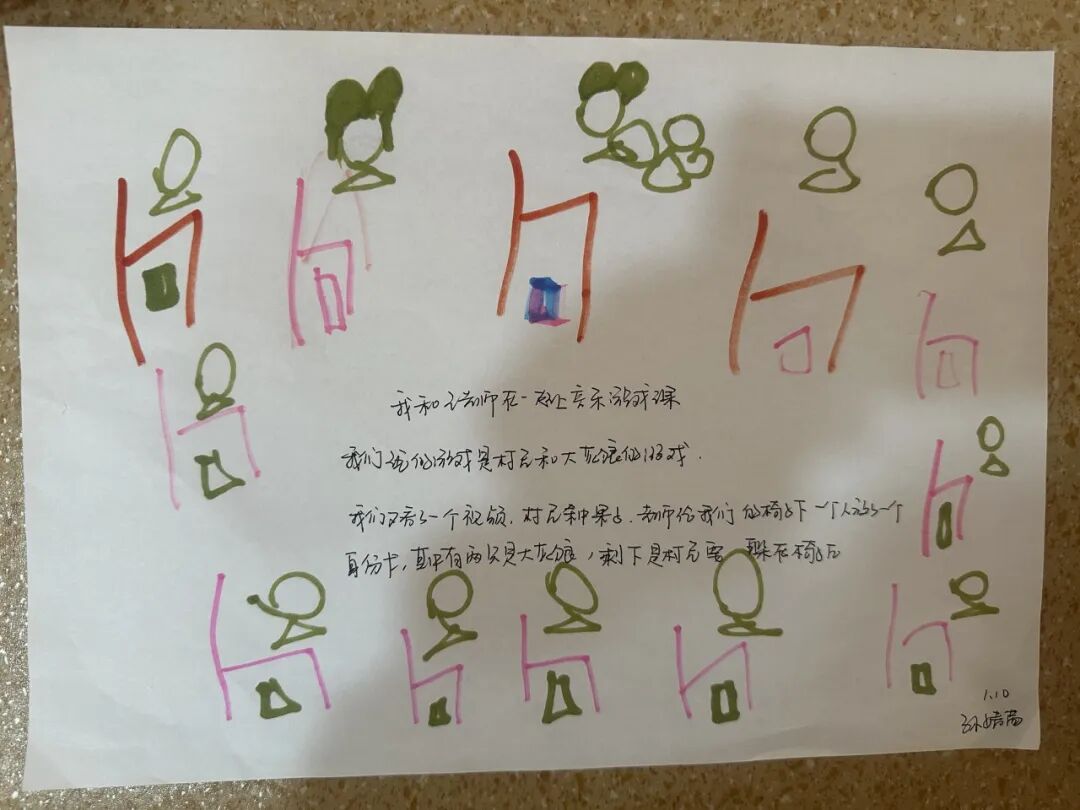 我和王老师在一起上音乐游戏课
我们玩的游戏是村民和大灰狼的游戏.
我们又看了一个视频.村民种果子.老师给我们的椅子下一个人放一个
身份卡,其中有两只是大灰狼,剩下是村民要 躲在椅子后
1.10
孙婧